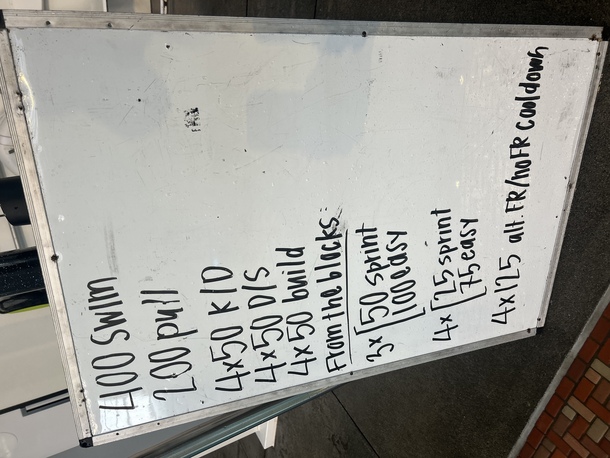 400 swim
200 pull
4x50 K/D
4x50 D/S
4x50 build
From the blocks
3x [50 sprint
100 easy
4x [25 sprint
75 easy
4x125 alt. FR/noFR cooldown